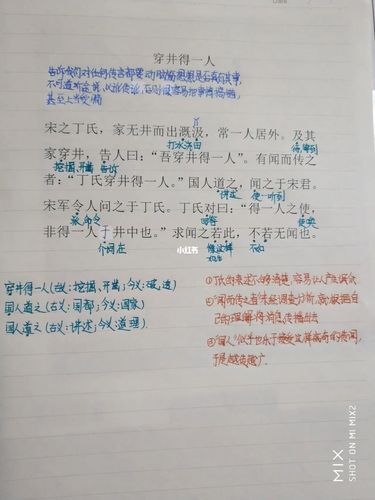 穿井得一人
告诉我们对任何传言都要动脑筋想想是否真有其事,
不可道听途说,以讹传讹,否则很容易把事情搞错,
甚至上当受骗
宋之丁氏,家无井而出溉汲,常一人居外。及其
打水浇田
待,等到
家穿井,告人曰:“吾穿井得一人”。有闻而传之
挖掘,开凿 告诉
者:“丁氏穿井得一人。”国人道之,闻之于宋君。
讲述
使…听到
宋君令人问之于丁氏。丁氏对曰:“得一人之使,
派,命令
回答
使唤
非得一人于井中也。”求闻之若此,不若无闻也。
介词,在
像这样
不如
小红书
穿井得一人(古义:挖掘、开凿;今义:破,透)
国人道之(古义:国都;今义:国家)
国人道之(古义:讲述;今义:道理)
①丁氏的表述不够清楚,容易让人产生误会
②“闻而传之者”未经调查分析,就根据自
己的理解将消息传播出去
③“国人”似乎也乐于接受这样离奇的传闻,
于是越传越广.
MIX
SHOT ON MI MIX2